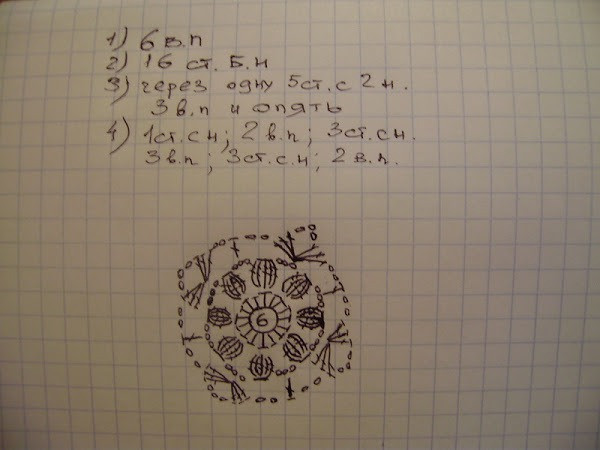 1) 6 в.п
2) 16 ст. Б.н
3) через одну 5ст. с 2 н.
3 в.п и опять
4) 1ст. с н; 2 в.п; 3ст. с н.
3в.п; 3ст. с.н; 2 в.п.
6